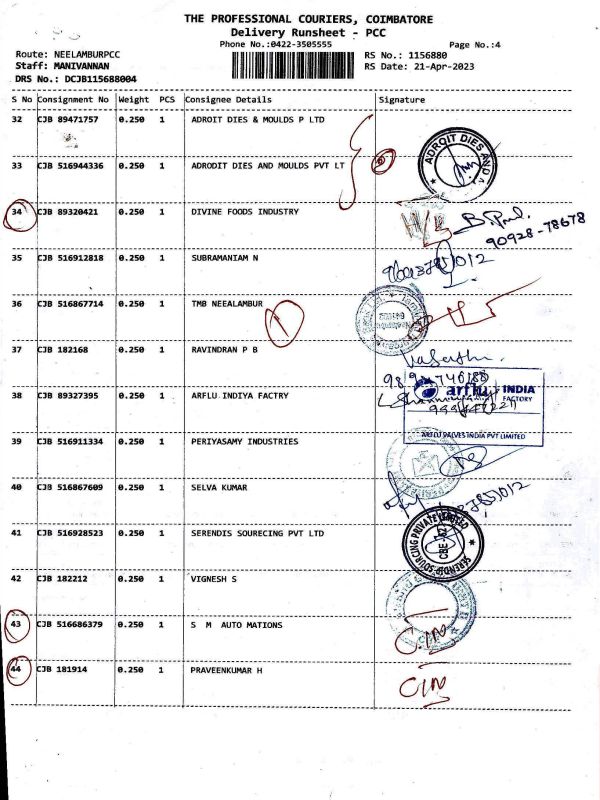 THE PROFESSIONAL COURIERS, COIMBATORE
Delivery Runsheet - PCC
Phone No.:0422-3505555
Page No.:4
Route: NEELAMBURPCC
RS No.: 1156880
Staff: MANIVANNAN
RS Date: 21-Apr-2023
DRS No.: DCJB115688004
S No Consignment No Weight PCS Consignee Details Signature
32 CJB 89471757 0.250 1 ADROIT DIES & MOULDS P LTD
33 CJB 516944336 0.250 1 ADRODIT DIES AND MOULDS PVT LT
ADROIT DIES AND
34 CJB 89320421 0.250 1 DIVINE FOODS INDUSTRY
90928-78678
35 CJB 516912818 0.250 1 SUBRAMANIAM N
36 CJB 516867714 0.250 1 TMB NEEALAMBUR
1
37 CJB 182168 0.250 1 RAVINDRAN P B
38 CJB 89327395 0.250 1 ARFLU INDIYA FACTRY
arflu INDIA
FACTORY
ARFLU VALVES INDIA PVT LIMITED
39 CJB 516911334 0.250 1 PERIYASAMY INDUSTRIES
40 CJB 516867609 0.250 1 SELVA KUMAR
41 CJB 516928523 0.250 1 SERENDIS SOURECING PVT LTD
SERENDIB SOURCING PRIVATE LIMITED
42 CJB 182212 0.250 1 VIGNESH S
43 CJB 516686379 0.250 1 S M AUTO MATIONS
44 CJB 181914 0.250 1 PRAVEENKUMAR H